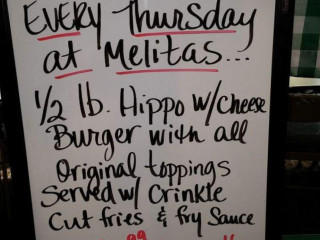 EVERY Thursday
at Melitas...
1/2 lb. Hippo w/cheese
Burger with all
Original toppings
Served w/ Crinkle
Cut fries & fry Sauce
99